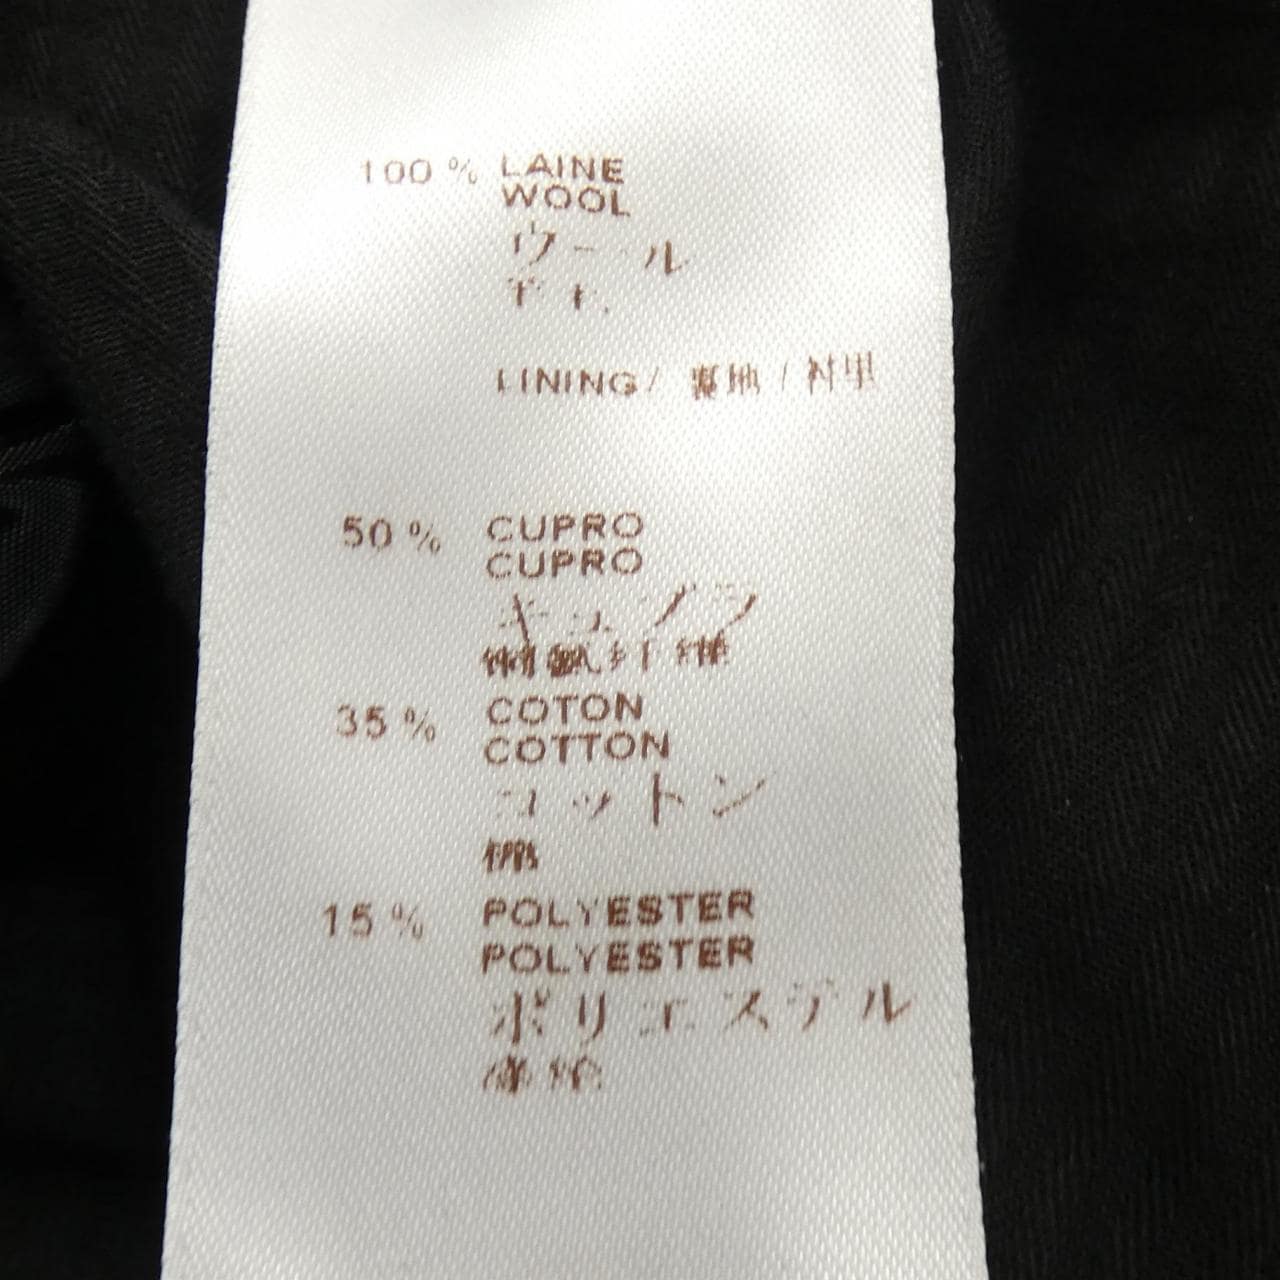 100 % LAINE
WOOL
ウール
羊毛
LINING / 裏地 / 衬里
50 % CUPRO
CUPRO
キュプラ
35 % COTON
COTTON
コットン
棉
15 % POLYESTER
POLYESTER
ポリエステル